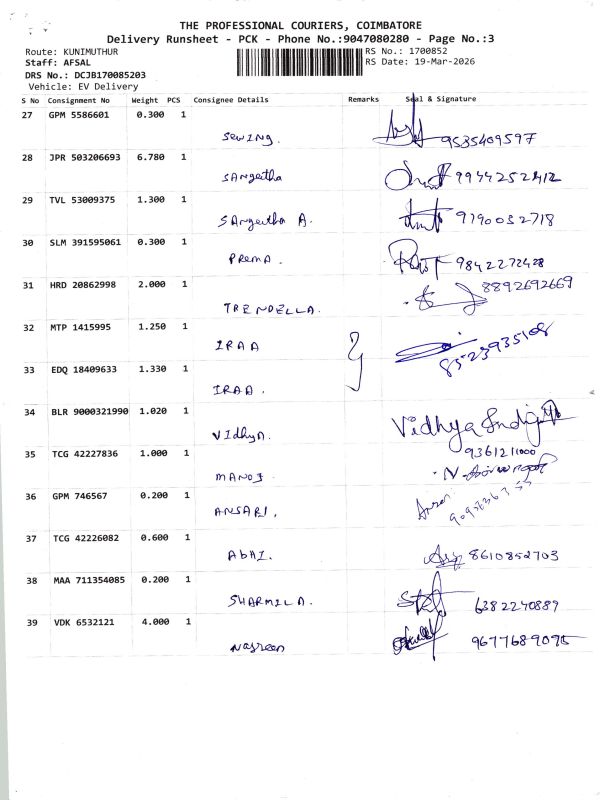 THE PROFESSIONAL COURIERS, COIMBATORE
Delivery Runsheet - PCK - Phone No.:9047080280 - Page No.:3
Route: KUNIMUTHUR RS No.: 1700852
Staff: AFSAL RS Date: 19-Mar-2026
DRS No.: DCJB170085203
Vehicle: EV Delivery
S No Consignment No Weight PCS Consignee Details Remarks Seal & Signature
27 GPM 5586601 0.300 1
Sewing. 9535409597
28 JPR 503206693 6.780 1
SAngeetha 9944252412
29 TVL 53009375 1.300 1
SAngeetha A. 9190032718
30 SLM 391595061 0.300 1
PremA. 9842272428
31 HRD 20862998 2.000 1
8892692669
TRENDELLA.
32 MTP 1415995 1.250 1
IRAA 8523935108
33 EDQ 18409633 1.330 1
IRAA.
34 BLR 9000321990 1.020 1
Vidhya
VIdhyA.
35 TCG 42227836 1.000 1
9361211000
MANOJ
36 GPM 746567 0.200 1
ANSARI.
37 TCG 42226082 0.600 1
AbAI. 8610852703
38 MAA 711354085 0.200 1
SHARMILA. 6382240889
39 VDK 6532121 4.000 1
Nasreen 9677689095